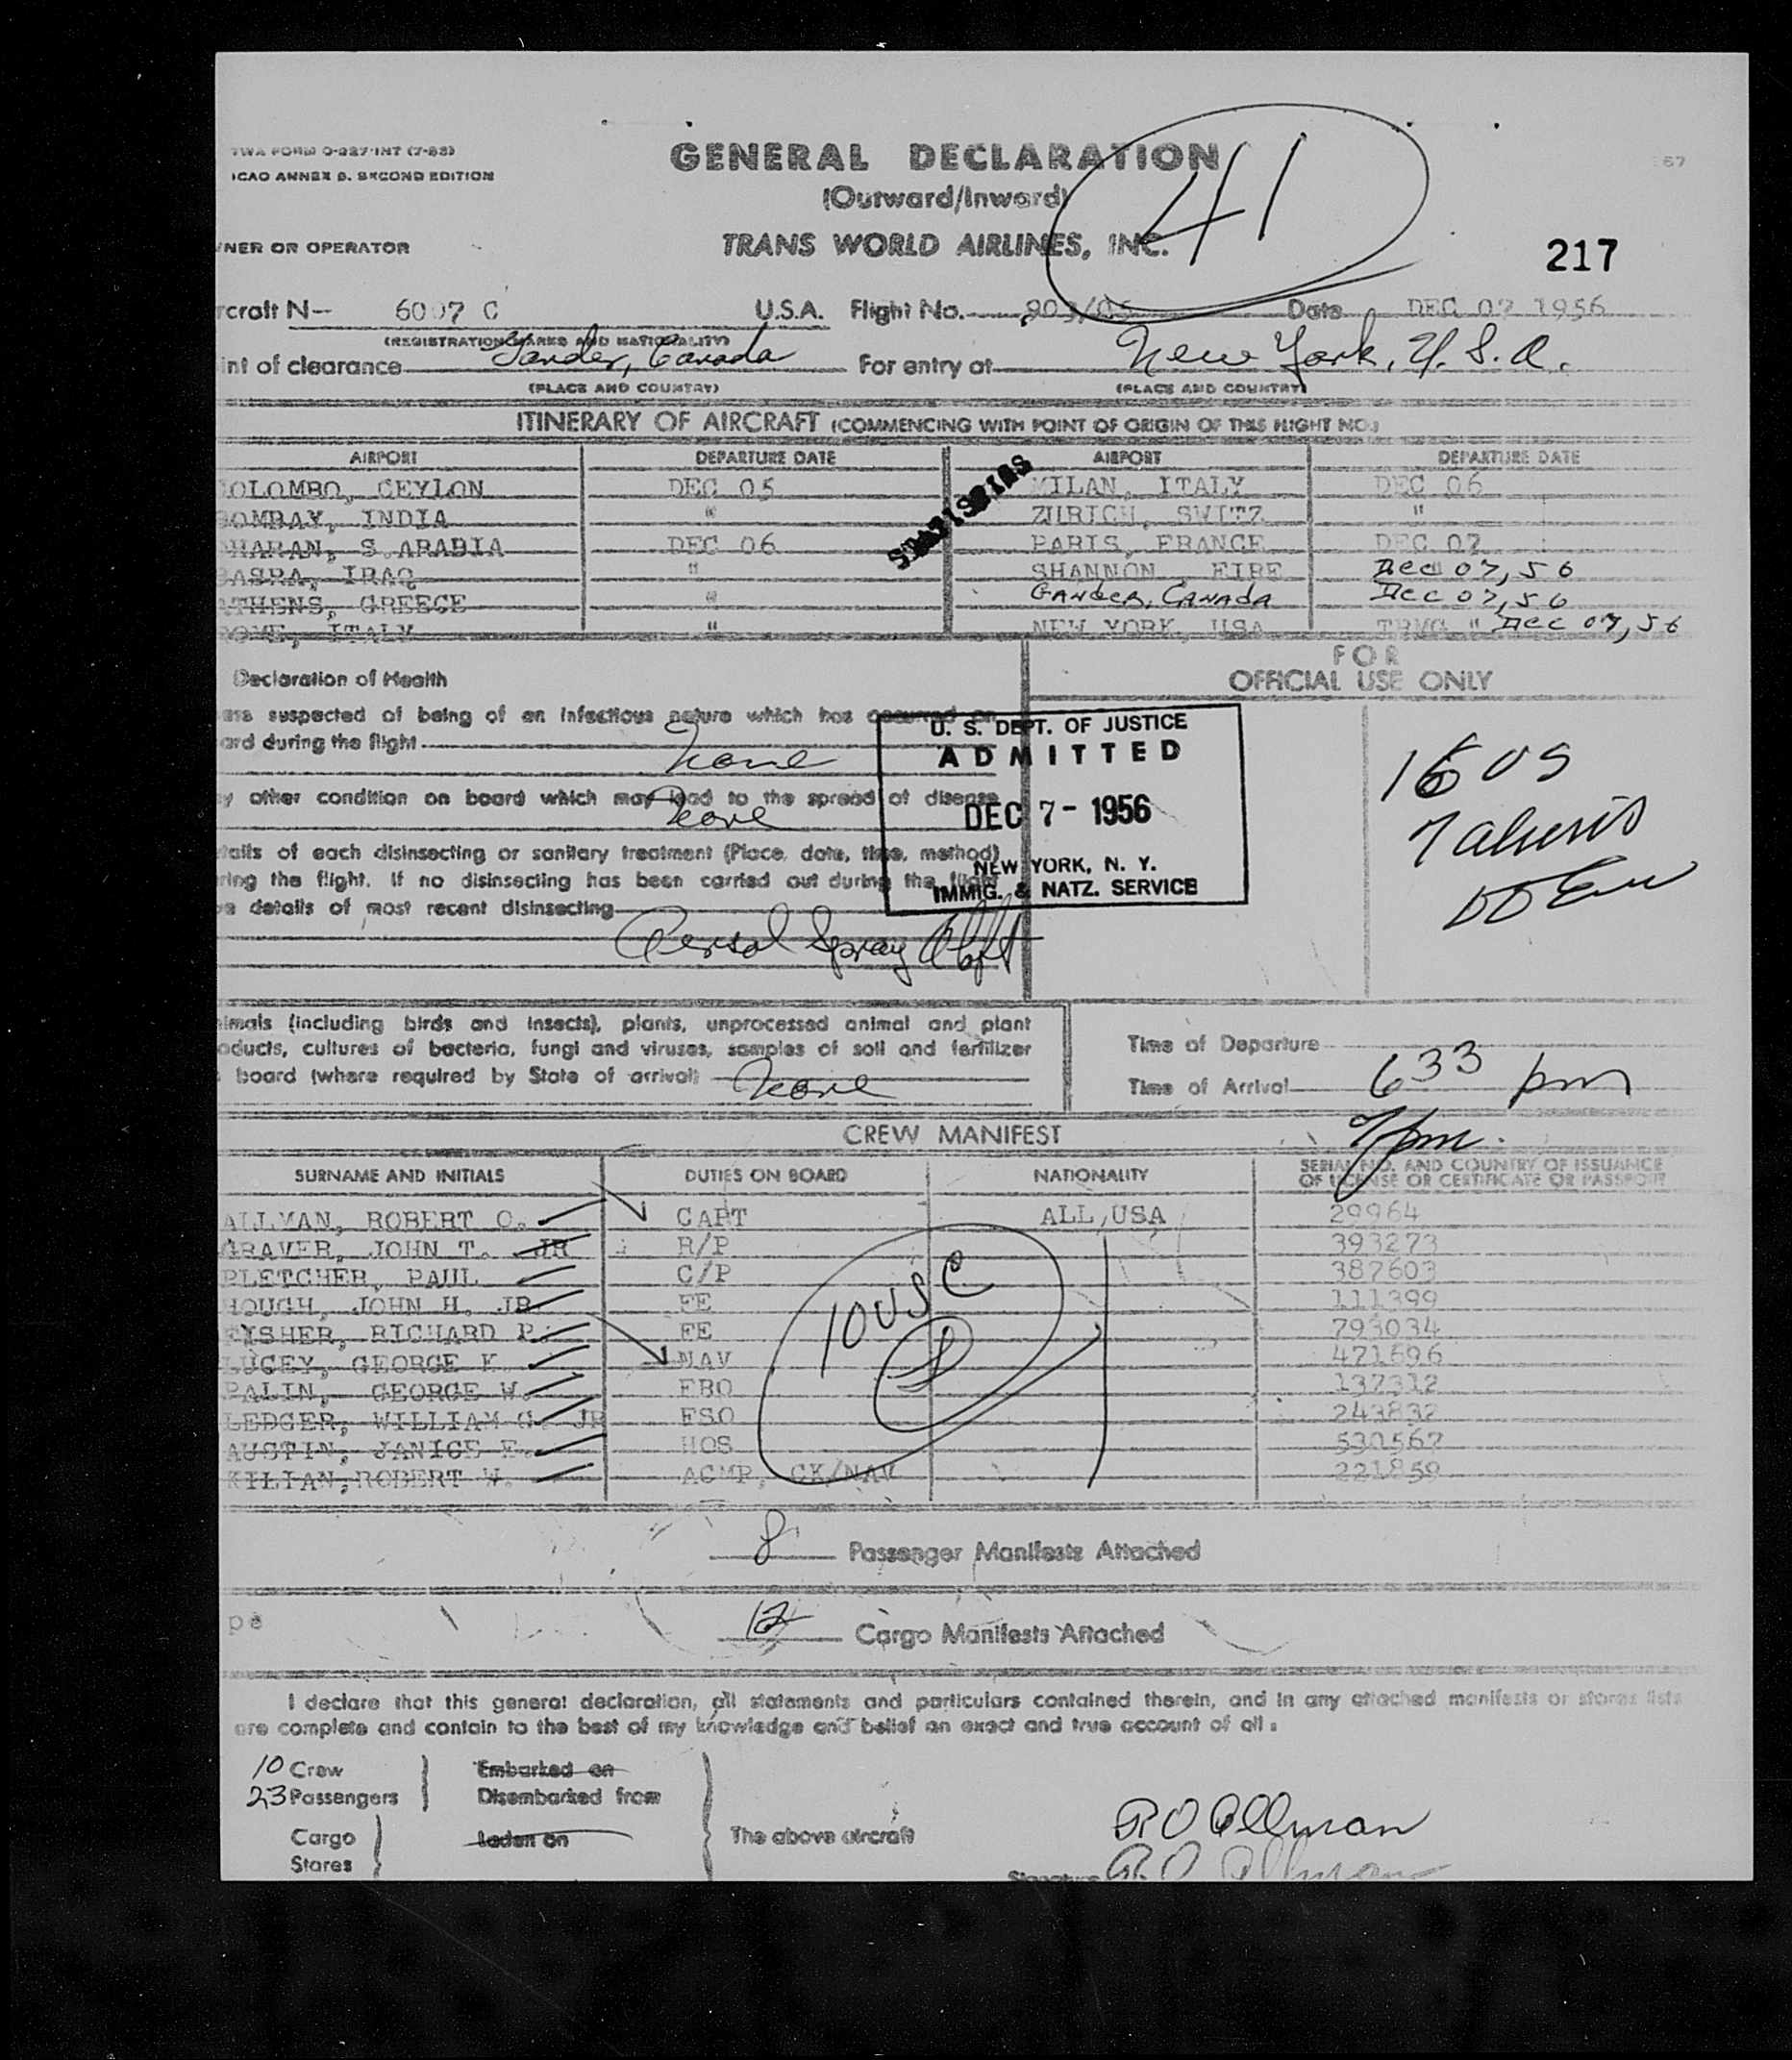 TWA FORM O-227-INT (7-53)
ICAO ANNEX 9. SECOND EDITION
GENERAL DECLARATION
(Outward/Inward)
41
NER OR OPERATOR
TRANS WORLD AIRLINES, INC.
217
rcraft N-- 6007 C U.S.A. Flight No. 903/05 Date DEC 07 1956
(REGISTRATION MARKS AND NATIONALITY)
int of clearance Gander, Canada For entry at New York, U.S.A.
(PLACE AND COUNTRY) (PLACE AND COUNTRY)
ITINERARY OF AIRCRAFT (COMMENCING WITH POINT OF ORIGIN OF THIS FLIGHT NO.)
AIRPORT DEPARTURE DATE AIRPORT DEPARTURE DATE
OLOMBO, CEYLON DEC 05 MILAN, ITALY DEC 06
BOMBAY, INDIA " ZURICH, SWITZ "
DHARAN, S ARABIA DEC 06 PARIS, FRANCE DEC 07
BASRA, IRAQ " SHANNON EIRE Dec 07, 56
ATHENS, GREECE " Gander, Canada Dec 07, 56
ROME, ITALY " NEW YORK, USA TRMG " Dec 07, 56
Declaration of Health
FOR
OFFICIAL USE ONLY
ess suspected of being of an infectious nature which has occurred on
ard during the flight None
y other condition on board which may lead to the spread of disease
None
U. S. DEPT. OF JUSTICE
ADMITTED
DEC 7 - 1956
NEW YORK, N. Y.
IMMIG. & NATZ. SERVICE
16 US
7 aliens
tails of each disinsecting or sanitary treatment (Place, date, time, method)
ring the flight. If no disinsecting has been carried out during the flight
e details of most recent disinsecting
Spray
imals (including birds and insects), plants, unprocessed animal and plant
oducts, cultures of bacteria, fungi and viruses, samples of soil and fertilizer
board (where required by State of arrival) None
Time of Departure
Time of Arrival 633 pm
7pm.
CREW MANIFEST
SURNAME AND INITIALS DUTIES ON BOARD NATIONALITY SERIAL NO. AND COUNTRY OF ISSUANCE OF LICENSE OR CERTIFICATE OR PASSPORT
ALLMAN, ROBERT O. CAPT ALL USA 29964
GRAVER, JOHN T. JR R/P 393273
PLETCHER, PAUL C/P 387603
HOUGH, JOHN H. JR FE 111399
FISHER, RICHARD P. FE 793034
LUCEY, GEORGE K NAV 471696
PALIN, GEORGE W. FRO 137312
LEDGER, WILLIAM G. JR FSO 243832
AUSTIN, JANICE E. HOS 530567
KILIAN, ROBERT W. ACMP, CK/NAV 221859
10 USC
8 Passenger Manifests Attached
pe
12 Cargo Manifests Attached
I declare that this general declaration, all statements and particulars contained therein, and in any attached manifests or stores lists
are complete and contain to the best of my knowledge and belief an exact and true account of all:
10 Crew Embarked on
23 Passengers Disembarked from
Cargo Laden on The above aircraft
Stores
R O Allman
Signature R. O. Allman